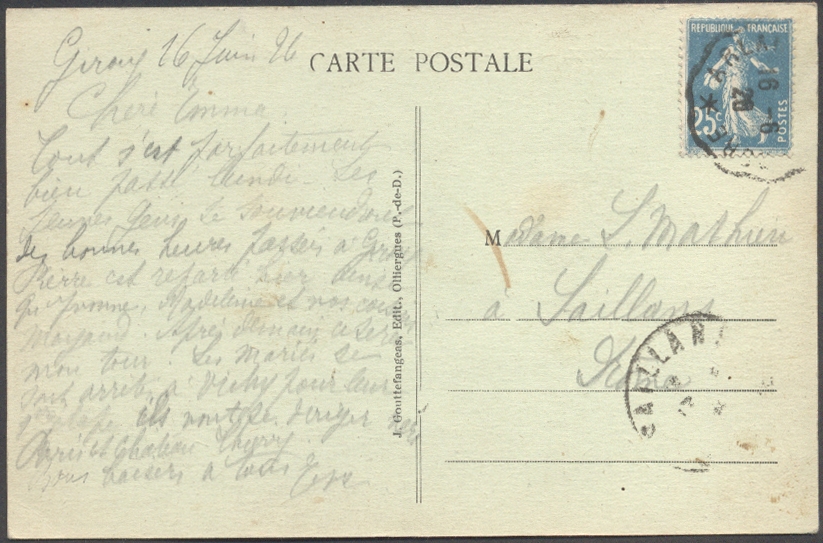 Giroux 16 Juin 26
CARTE POSTALE
REPUBLIQUE FRANÇAISE
25c
POSTES
16 -6
26
Chère Emma
Tout s'est parfaitement
bien passé lundi. Les
jeunes gens se souviendront
des bonnes heures passées à Giroux
Pierre est reparti hier ainsi
que Yvonne, Madeleine et nos cousins
Après demain ce sera
mon tour. Les mariés se
sont arrêtés à Vichy pour leur
1re étape, ils vont se diriger vers
Paris et Chateau Thierry.
Bons baisers à tous
J. Gouttefangeas, Edit., Olliergues (P.-de-D.)
Madame S. Mathieu
à Saillans
Drôme
SAILLANS